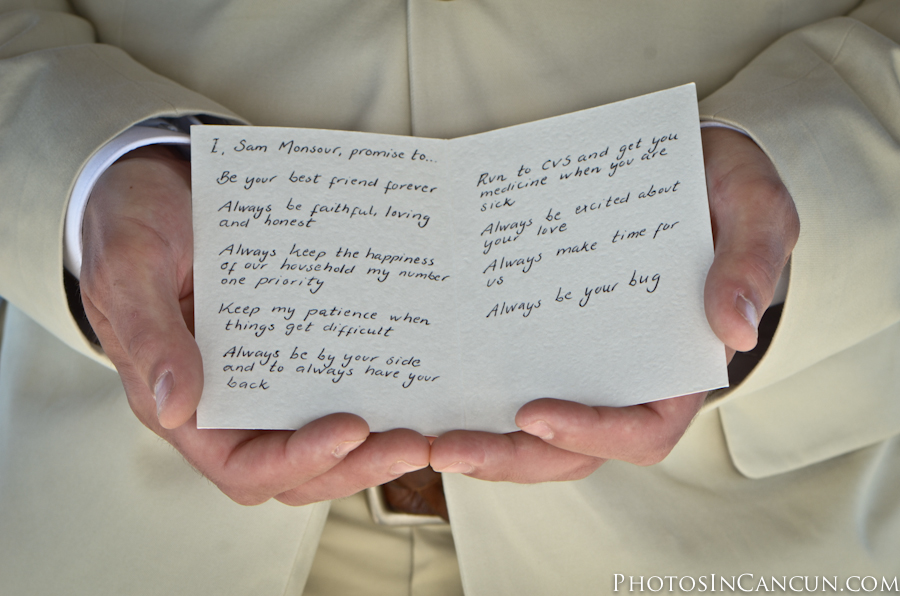 I, Sam Monsour, promise to...
Be your best friend forever
Always be faithful, loving
and honest
Always keep the happiness
of our household my number
one priority
Keep my patience when
things get difficult
Always be by your side
and to always have your
back
Run to CVS and get you
medicine when you are
sick
Always be excited about
your love
Always make time for
us
Always be your bug
PhotosInCancun.com